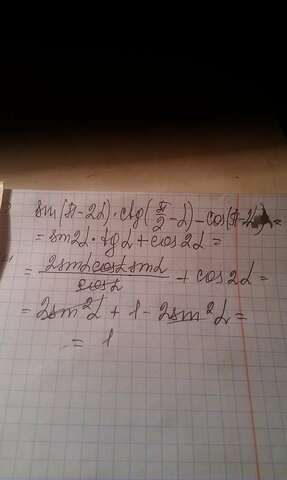 sin(π-2α)·ctg(π/2-α)-cos(π-2α)=
=sin2α·tgα+cos2α=
=2sinαcosαsinα/cosα+cos2α=
=2sin²α+1-2sin²α=
=1